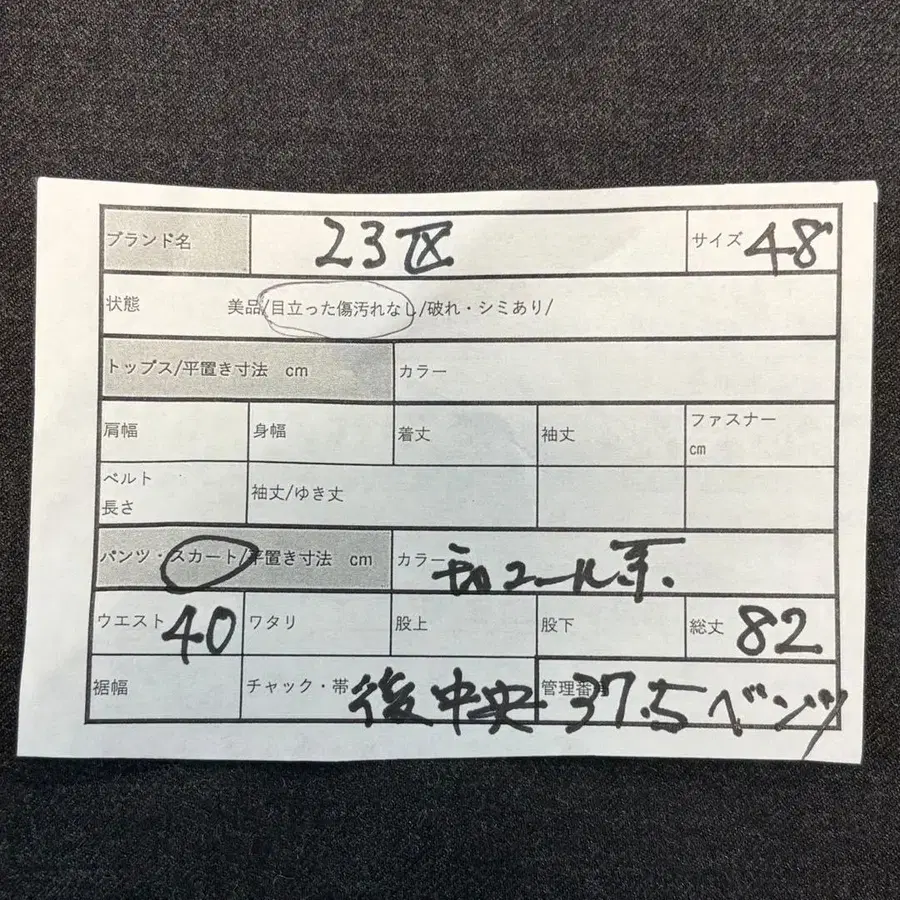 ブランド名 23区 サイズ 48
状態 美品/目立った傷汚れなし/破れ・シミあり/
トップス/平置き寸法 cm カラー
肩幅 身幅 着丈 袖丈 ファスナー
cm
ベルト
長さ 袖丈/ゆき丈
パンツ・スカート/平置き寸法 cm カラー チャコール系.
ウエスト 40 ワタリ 股上 股下 総丈 82
裾幅 チャック・帯 管理番号
後中央 37.5 ベンツ